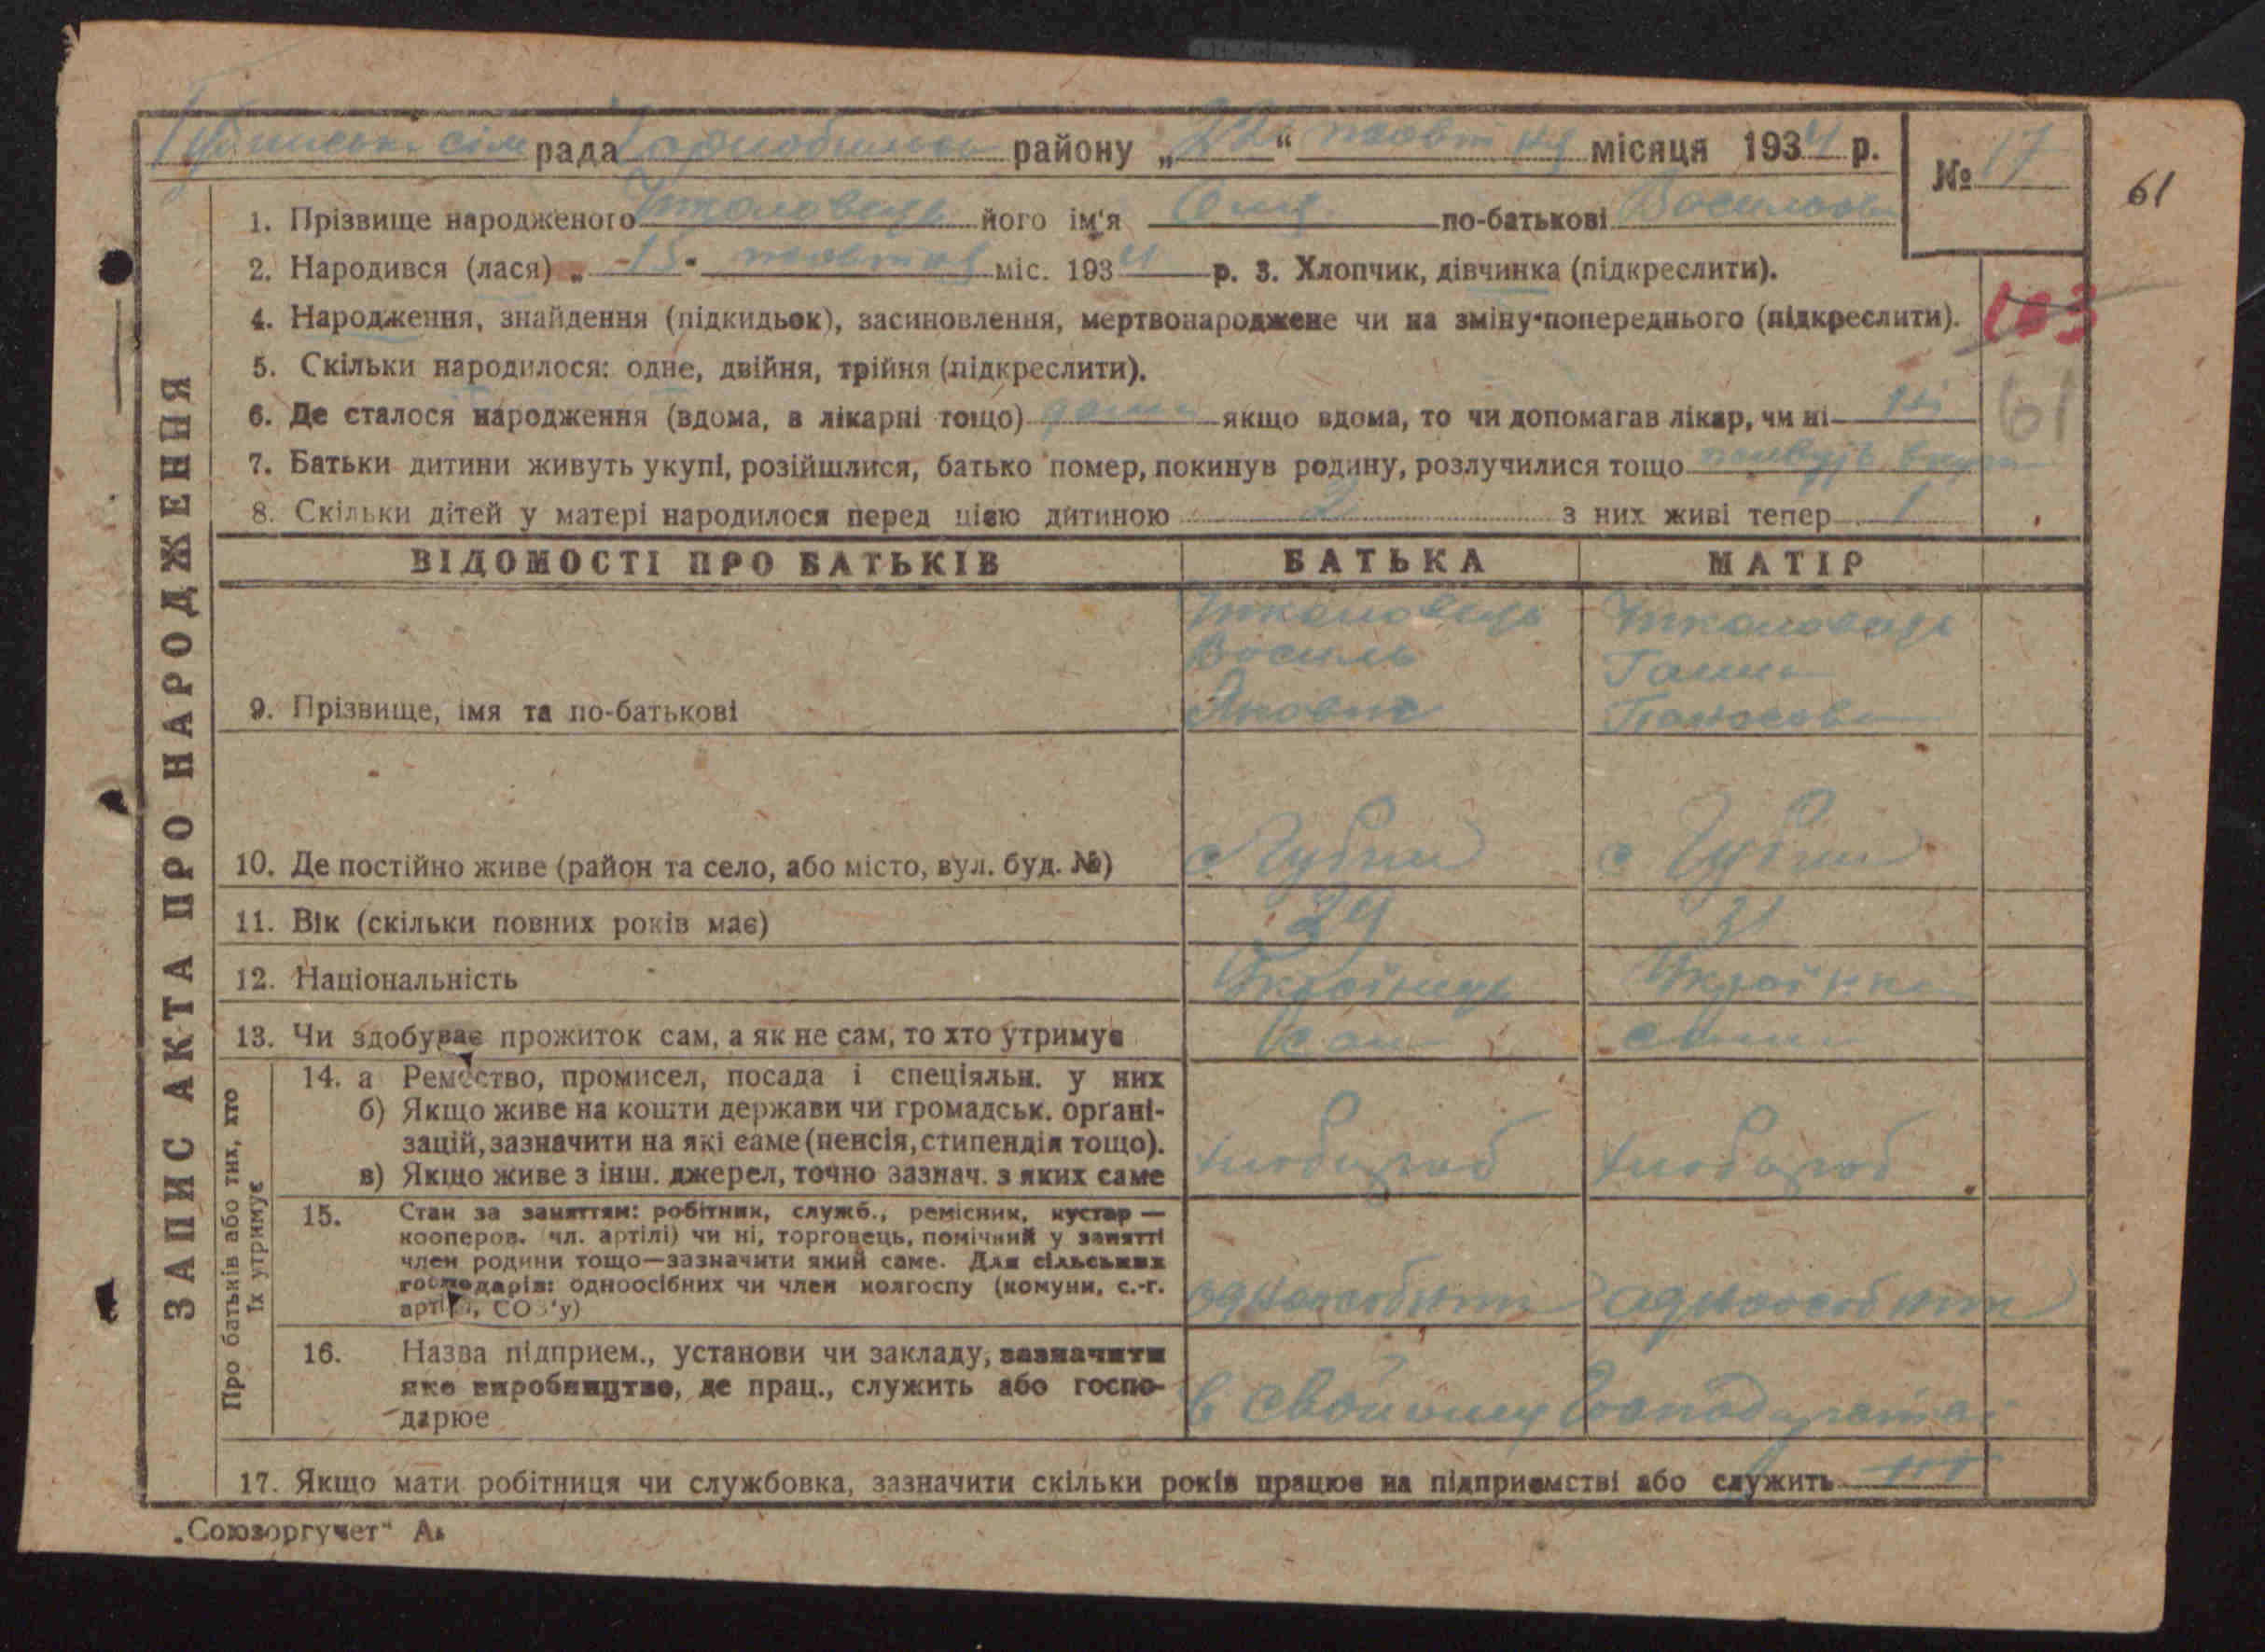 Губинська сіл рада Чорнобильськ району „ 22 “ жовтня місяця 1934 р.
№ 17
61
1. Прізвище народженого його ім'я Оля по-батькові Васильовна
2. Народився (лася) „ 15 " жовтня міс. 1934 р. 3. Хлопчик, дівчинка (підкреслити).
4. Народження, знайдення (підкидьок), засиновлення, мертвонароджене чи на зміну попереднього (підкреслити).
103
5. Скільки народилося: одне, двійня, трійня (підкреслити).
6. Де сталося народження (вдома, в лікарні тощо) дома якщо вдома, то чи допомагав лікар, чи ні ні
61
7. Батьки дитини живуть укупі, розійшлися, батько помер, покинув родину, розлучилися тощо живуть вкупі
8. Скільки дітей у матері народилося перед цією дитиною 2 з них живі тепер 1
ЗАПИС АКТА ПРО НАРОДЖЕННЯ
ВІДОМОСТІ ПРО БАТЬКІВ БАТЬКА МАТІР
Василь Ганна
9. Прізвище, імя та по-батькові Якович Панасовна
10. Де постійно живе (район та село, або місто, вул. буд. №) с Губин с Губин
11. Вік (скільки повних років має) 34 31
12. Національність Українець Українка
13. Чи здобуває прожиток сам, а як не сам, то хто утримує сам сама
Про батьків або тих, хто
їх утримує
14. а Ремество, промисел, посада і спеціяльн. у них
б) Якщо живе на кошти держави чи громадськ. органі-
зацій, зазначити на які саме (пенсія, стипендія тощо).
в) Якщо живе з інш. джерел, точно зазнач. з яких саме хлібороб хлібороб
15. Стан за заняттям: робітник, служб., ремісник, кустар —
кооперов. чл. артілі) чи ні, торговець, помічний у занятті
член родини тощо—зазначити який саме. Для сільських
господарів: одноосібних чи член колгоспу (комуни, с.-г.
артілі, СОЗ'у) одноособник одноособник
16. Назва підприєм., установи чи закладу, зазначити
яке виробництво, де прац., служить або госпо-
дарює в свойому господарстві
17. Якщо мати робітниця чи службовка, зазначити скільки років працює на підприємстві або служить
„Союзоргучет“